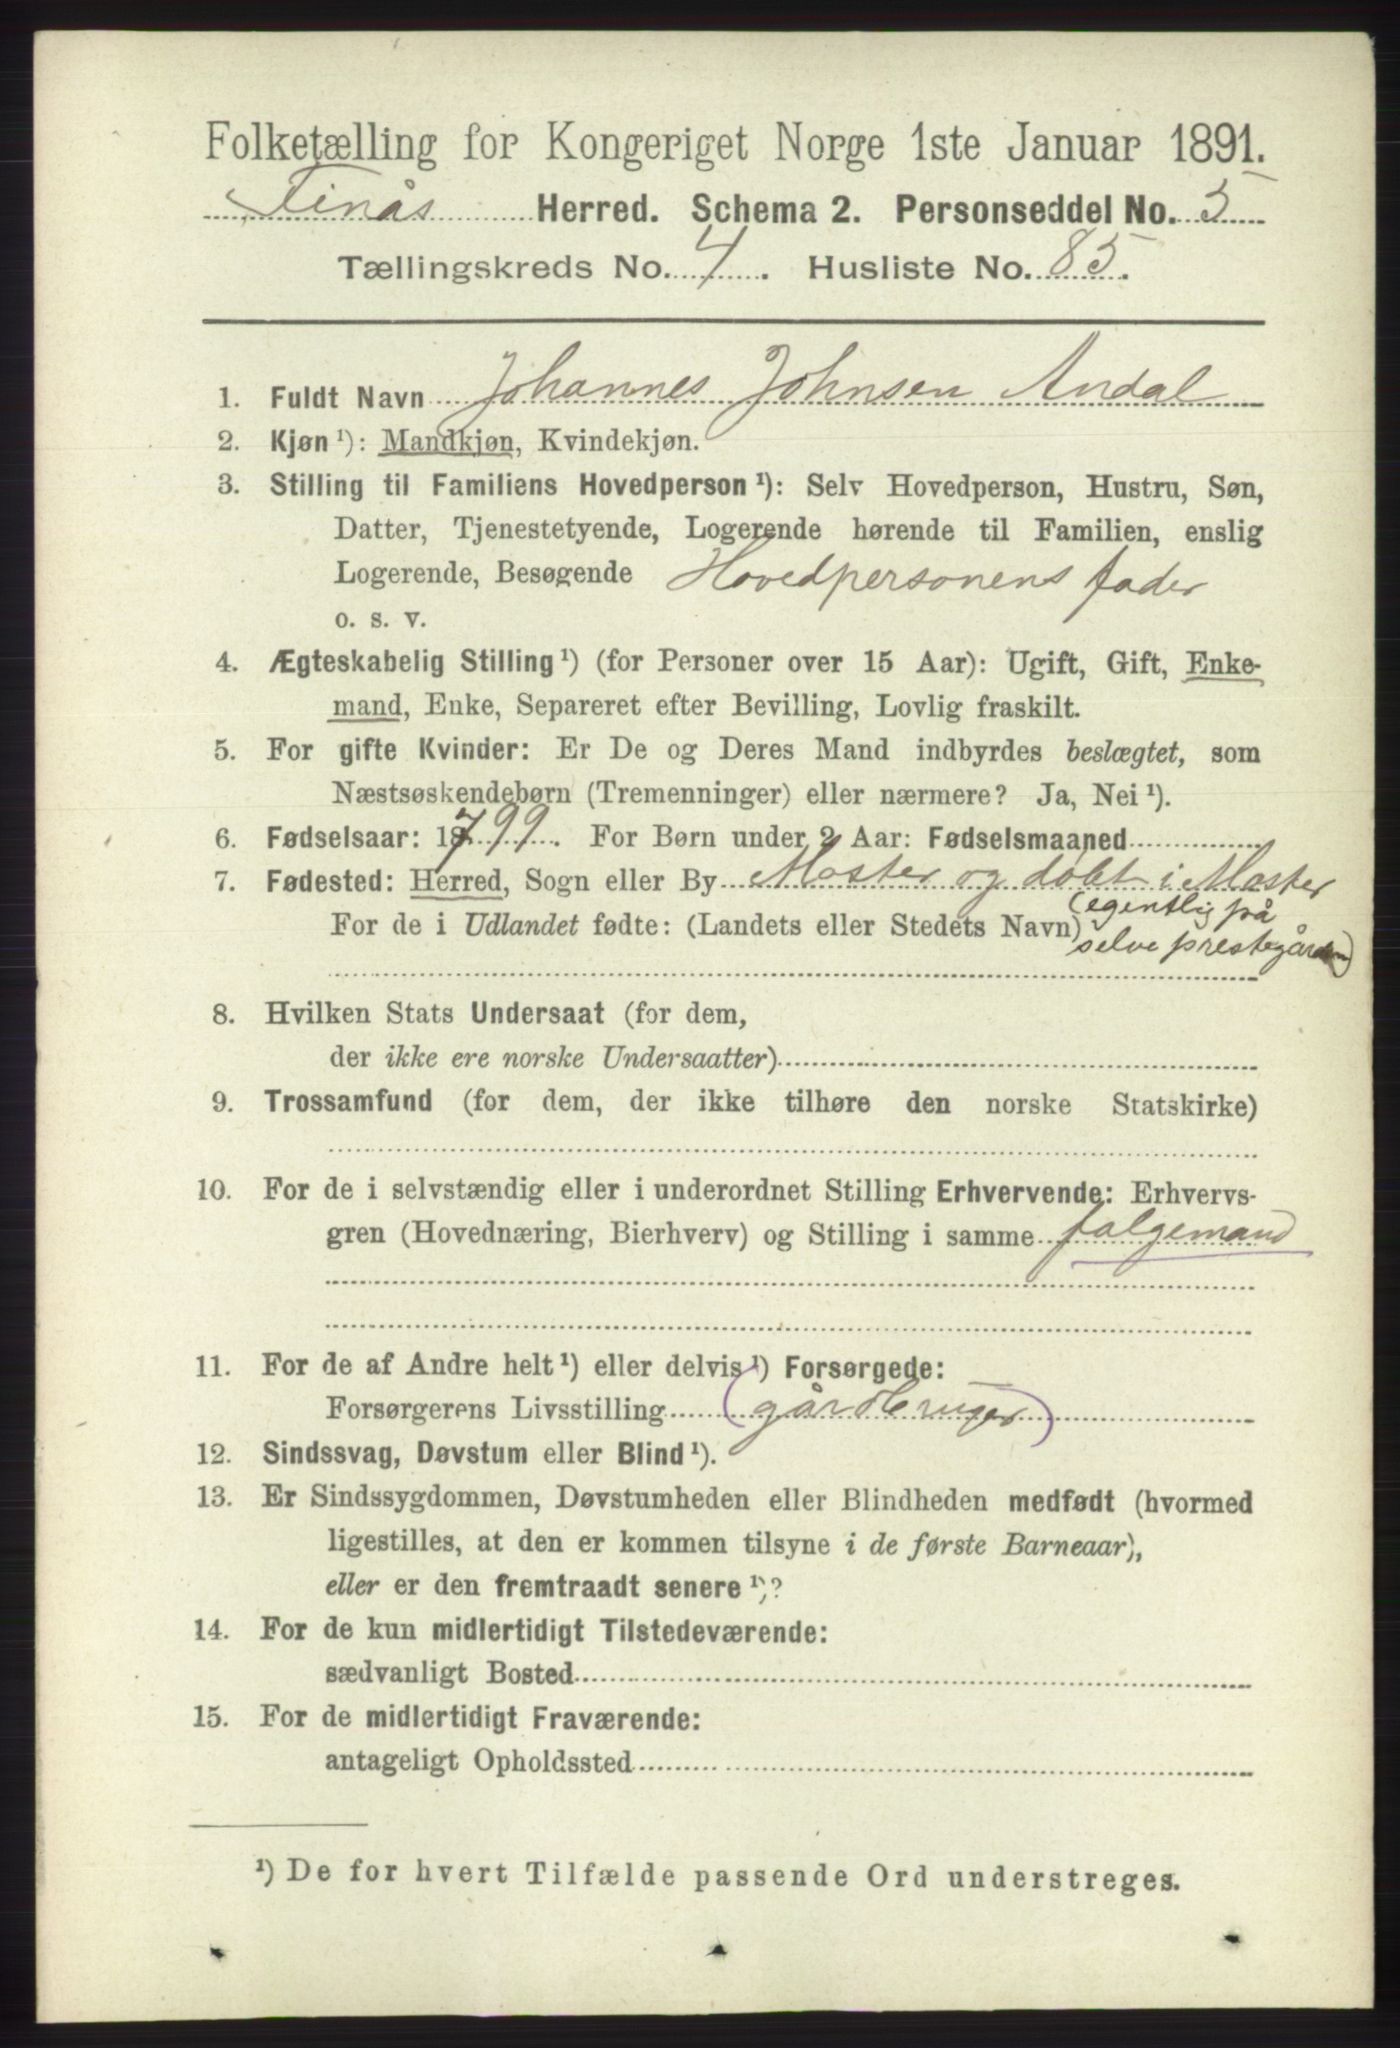 Folketælling for Kongeriget Norge 1ste Januar 1891.
Finås Herred. Schema 2. Personseddel No. 5
Tællingskreds No. 4. Husliste No. 85.
1. Fuldt Navn Johannes Johnsen Andal
2. Kjøn¹): Mandkjøn, Kvindekjøn.
3. Stilling til Familiens Hovedperson¹): Selv Hovedperson, Hustru, Søn,
Datter, Tjenestetyende, Logerende hørende til Familien, enslig
Logerende, Besøgende Hovedpersonens fader
o. s. v.
4. Ægteskabelig Stilling¹) (for Personer over 15 Aar): Ugift, Gift, Enke-
mand, Enke, Separeret efter Bevilling, Lovlig fraskilt.
5. For gifte Kvinder: Er De og Deres Mand indbyrdes beslægtet, som
Næstsøskendebørn (Tremenninger) eller nærmere? Ja, Nei¹).
6. Fødselsaar: 1799. For Børn under 2 Aar: Fødselsmaaned
7. Fødested: Herred, Sogn eller By Moster og døbt i Moster
(egentlig på
For de i Udlandet fødte: (Landets eller Stedets Navn)
selve prestegården)
8. Hvilken Stats Undersaat (for dem,
der ikke ere norske Undersaatter)
9. Trossamfund (for dem, der ikke tilhøre den norske Statskirke)
10. For de i selvstændig eller i underordnet Stilling Erhvervende: Erhvervs-
gren (Hovednæring, Bierhverv) og Stilling i samme følgemand
11. For de af Andre helt¹) eller delvis¹) Forsørgede:
Forsørgerens Livsstilling (gårdbruger)
12. Sindssvag, Døvstum eller Blind¹).
13. Er Sindssygdommen, Døvstumheden eller Blindheden medfødt (hvormed
ligestilles, at den er kommen tilsyne i de første Barneaar),
eller er den fremtraadt senere¹)?
14. For de kun midlertidigt Tilstedeværende:
sædvanligt Bosted
15. For de midlertidigt Fraværende:
antageligt Opholdssted
¹) De for hvert Tilfælde passende Ord understreges.